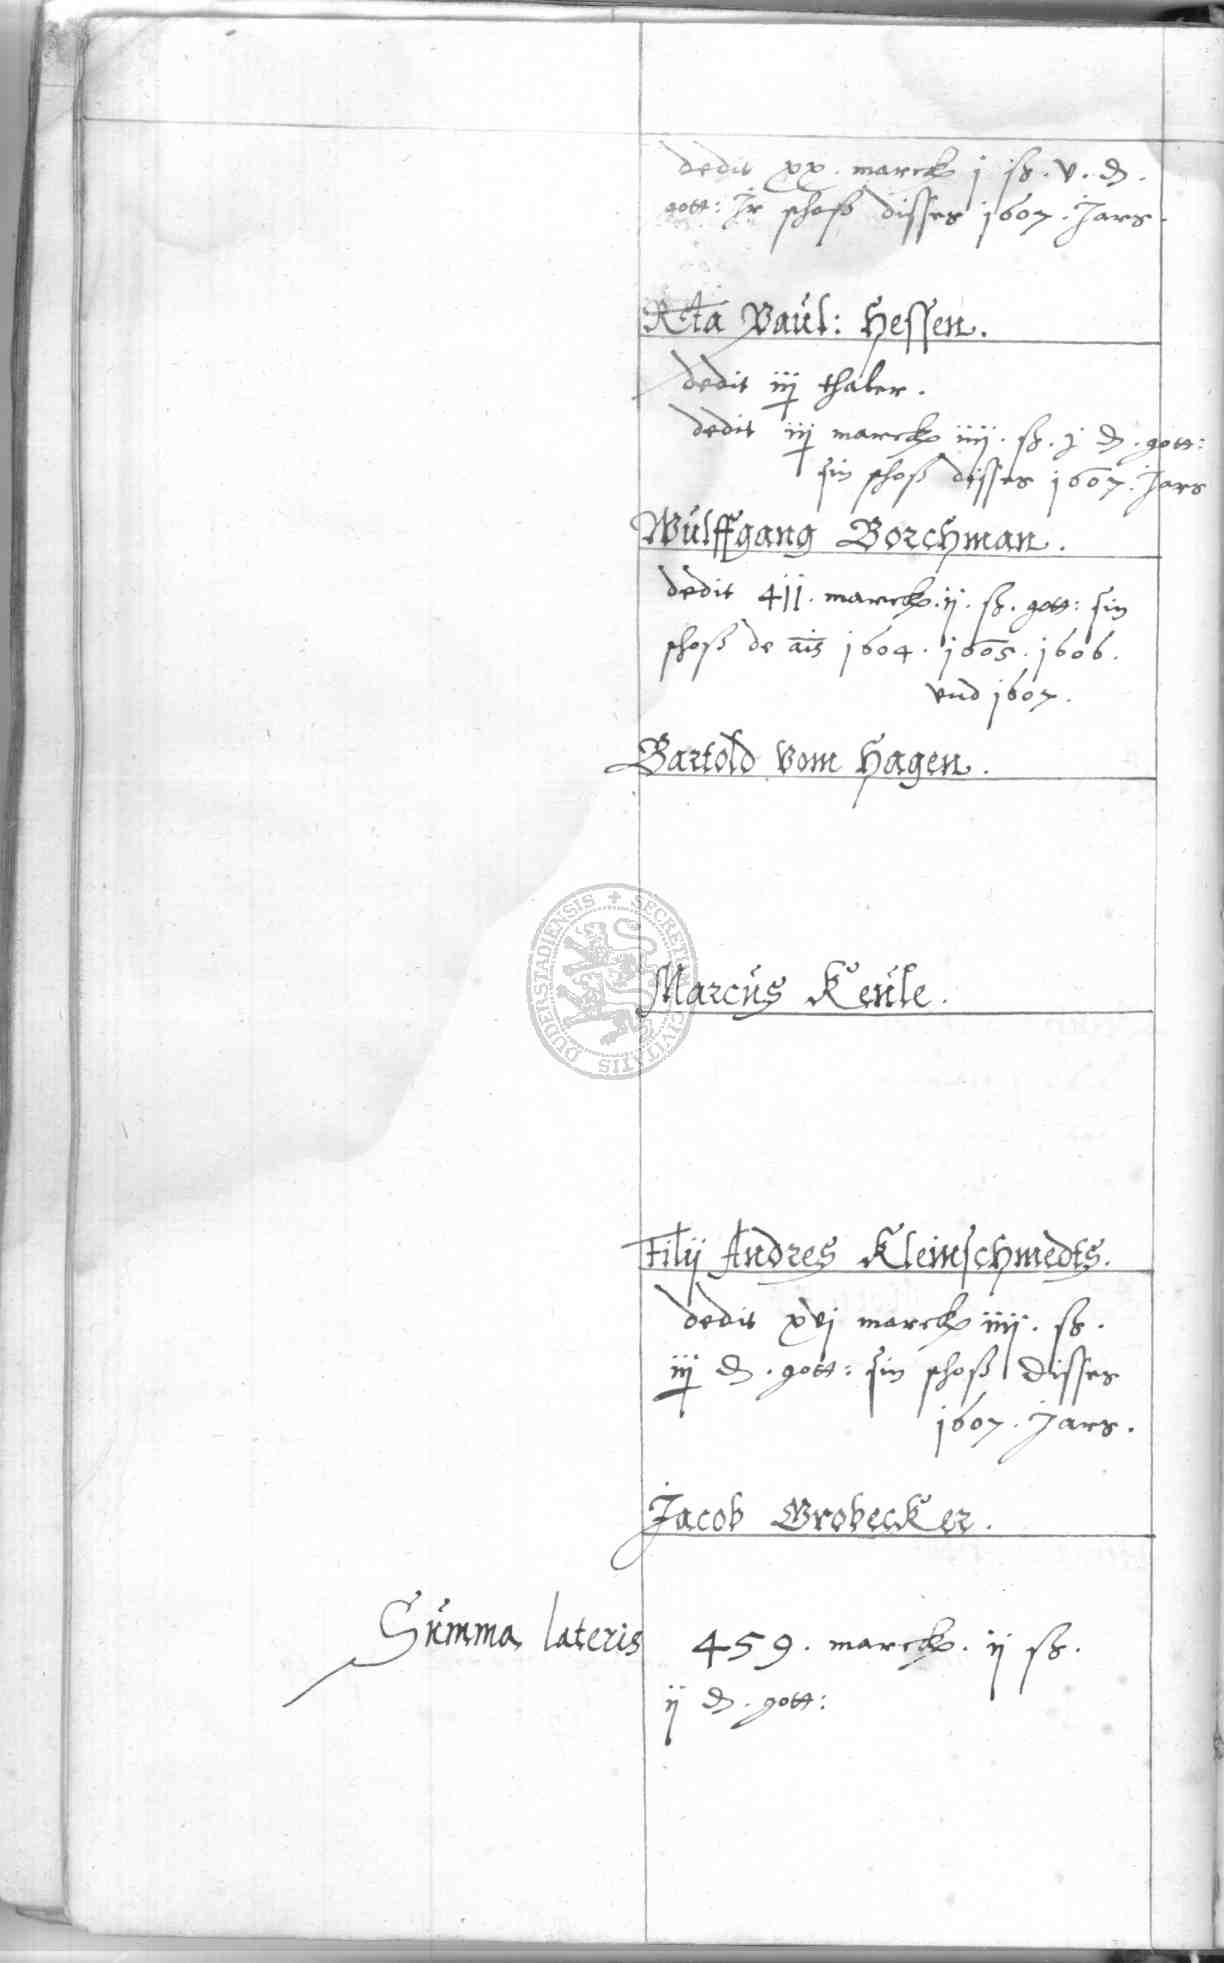 dedit xx. marck j ß. v. d.
gott: Ir schoß disses 1607. Jars.
Rcta Paul: Hessen.
dedit iij thaler.
dedit iij marck iiij. ß. j d. gott:
sin schoß disses 1607. Jars
Wulffgang Borchman.
dedit 411. marck. ij. ß. gott: sin
schoß de ais 1604. 1605. 1606.
vnd 1607.
Bartold vom Hagen.
SECRETUM CIVITATIS DUDERSTADIENSIS
Marcus Keule.
Filij Andres Kleinschmedts.
dedit xvj marck iiij. ß.
iij d. gott: sin schoß disses
1607. Jars.
Jacob Grobecker.
Summa lateris 459. marck. ij ß.
ij d. gott: